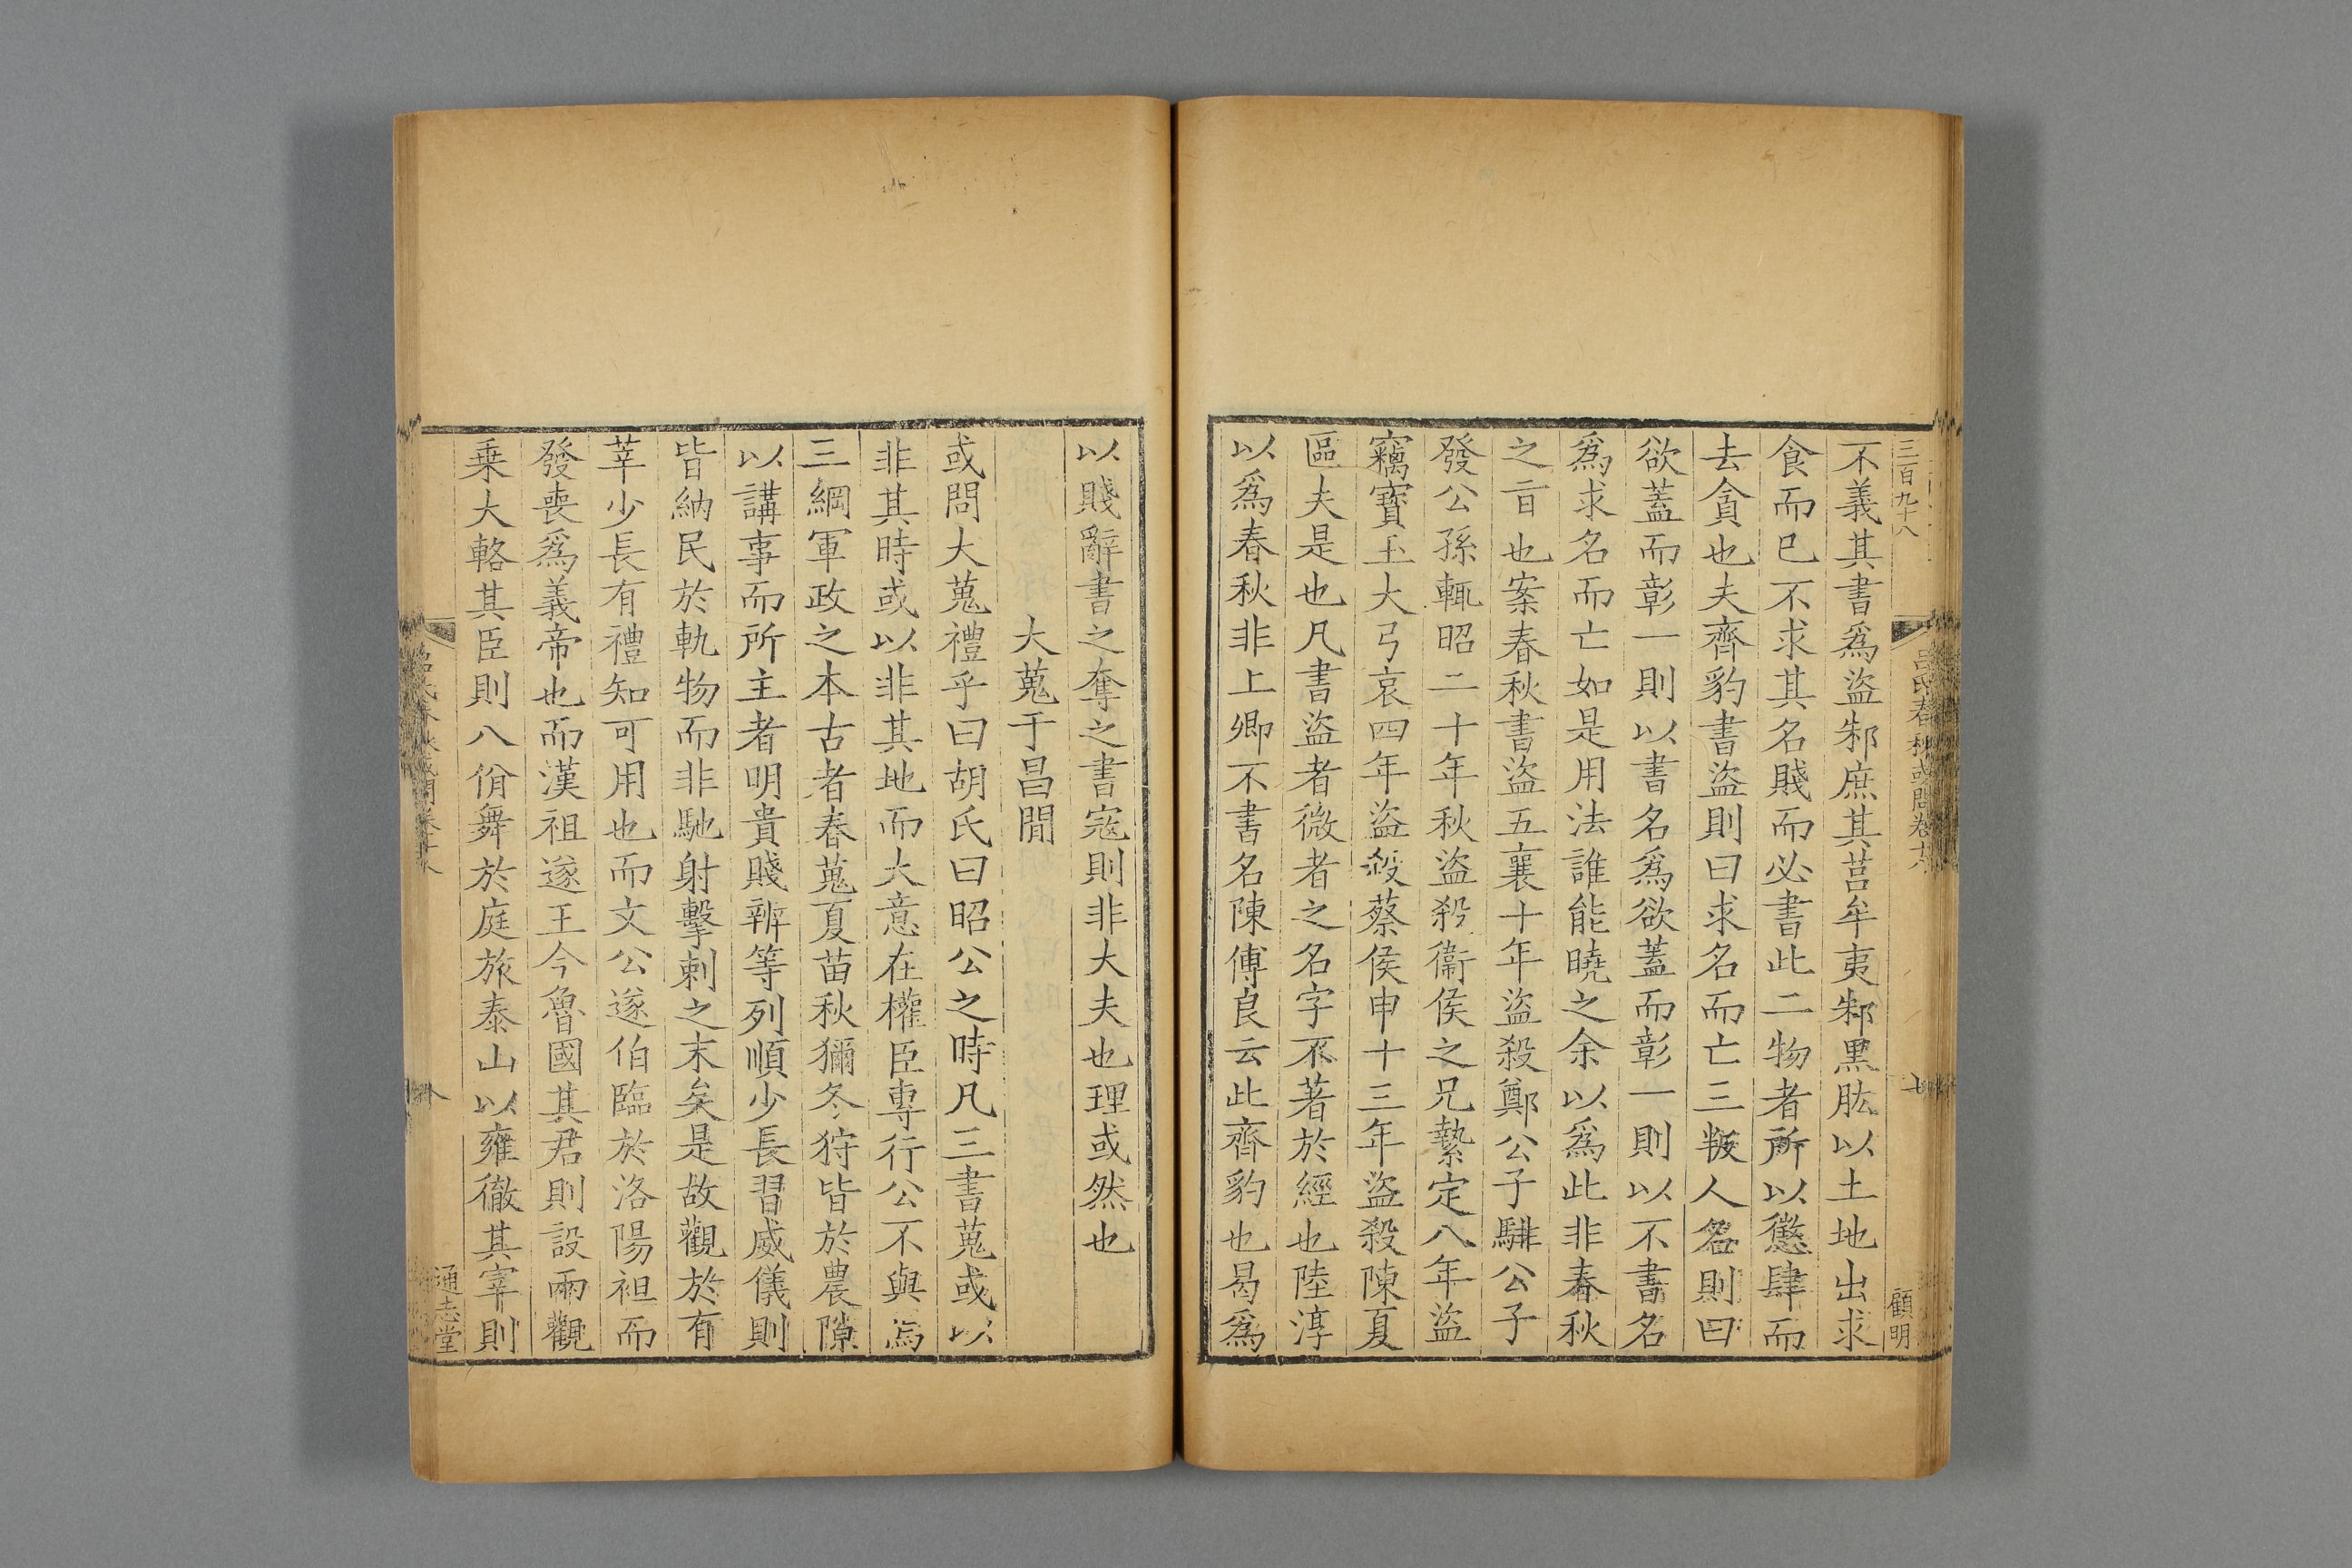 三百九十八
呂氏春秋或問卷十八
七
顧明
不義其書爲盜邾庶其莒牟夷邾黑肱以土地出求
食而已不求其名賤而必書此二物者所以懲肆而
去貪也夫齊豹書盜則曰求名而亡三叛人名則曰
欲蓋而彰一則以書名爲欲蓋而彰一則以不書名
爲求名而亡如是用法誰能曉之余以爲此非春秋
之旨也案春秋書盜五襄十年盜殺鄭公子騑公子
發公孫輒昭二十年秋盜殺衞侯之兄縶定八年盜
竊寶玉大弓哀四年盜殺蔡侯申十三年盜殺陳夏
區夫是也凡書盜者微者之名字不著於經也陸淳
以爲春秋非上卿不書名陳傅良云此齊豹也曷爲
以賤辭書之奪之書寇則非大夫也理或然也
大蒐于昌閒
或問大蒐禮乎曰胡氏曰昭公之時凡三書蒐或以
非其時或以非其地而大意在權臣專行公不與焉
三綱軍政之本古者春蒐夏苗秋獮冬狩皆於農隙
以講事而所主者明貴賤辨等列順少長習威儀則
皆納民於軌物而非馳射擊刺之末矣是故觀於有
莘少長有禮知可用也而文公遂伯臨於洛陽袒而
發喪爲義帝也而漢祖遂王今魯國其君則設兩觀
乗大輅其臣則八佾舞於庭旅泰山以雍徹其宰則
通志堂